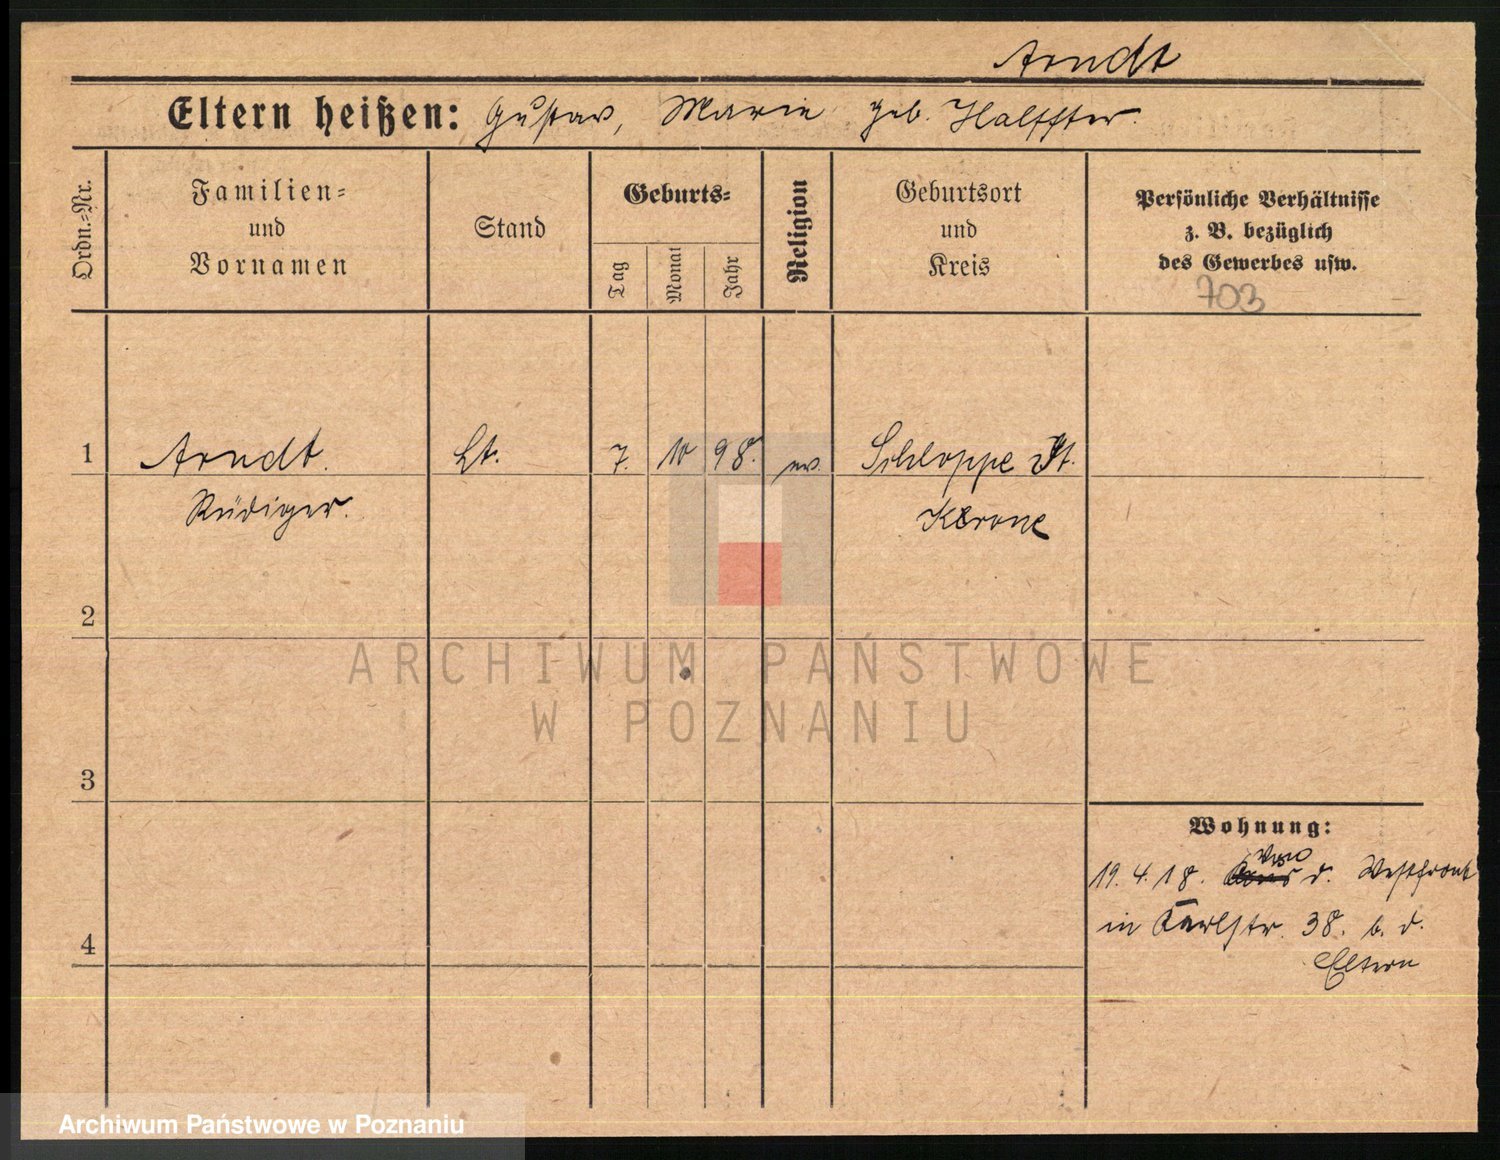 Arndt
Eltern heißen: Gustav, Marie geb. Halffter.
Ordn.=Nr.
Familien=
und
Vornamen
Stand
Geburts=
Tag
Monat
Jahr
Religion
Geburtsort
und
Kreis
Persönliche Verhältnisse
z. B. bezüglich
des Gewerbes usw.
703
1 Arndt. Lt. 7. 10 98. ev. Schloppe Dt.
Rüdiger. Krone
2
ARCHIWUM PAŃSTWOWE
W POZNANIU
3
Wohnung:
von
19. 4. 18. d. Westfront
4 in Karlstr. 38. b. d.
Eltern
Archiwum Państwowe w Poznaniu